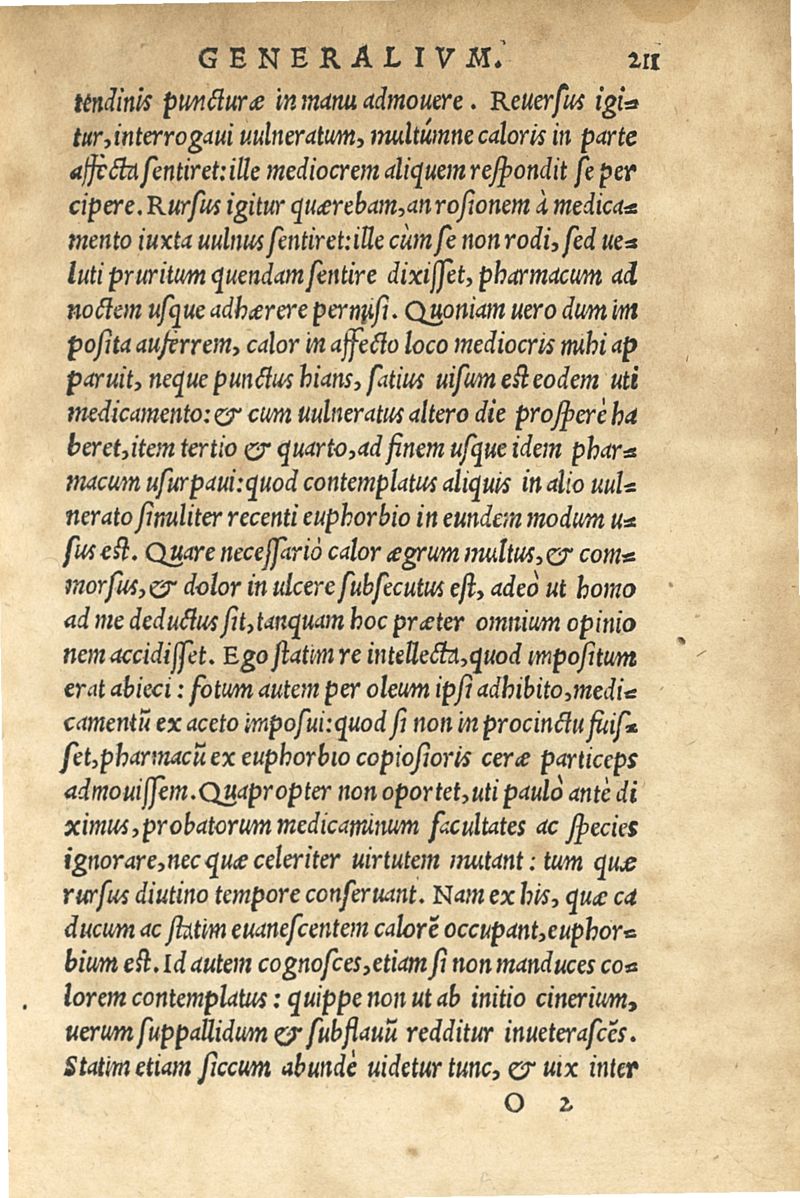 GENERALIVM. 211
tendinis puncturæ in manu admouere. Reuersus igi-
tur, interrogaui uulneratum, multúmne caloris in parte
affecta sentiret: ille mediocrem aliquem respondit se per
cipere. Rursus igitur quærebam, an rosionem à medica-
mento iuxta uulnus sentiret: ille cùm se non rodi, sed ue-
luti pruritum quendam sentire dixisset, pharmacum ad
noctem usque adhærere permisi. Quoniam uero dum im
posita auferrem, calor in affecto loco mediocris mihi ap
paruit, neque punctus hians, satius uisum est eodem uti
medicamento: & cum uulneratus altero die prosperè ha
beret, item tertio & quarto, ad finem usque idem phar-
macum usurpaui: quod contemplatus aliquis in alio uul-
nerato similiter recenti euphorbio in eundem modum u-
sus est. Quare necessariò calor ægrum multus, & com-
morsus, & dolor in ulcere subsecutus est, adeò ut homo
ad me deductus sit, tanquam hoc præter omnium opinio
nem accidisset. Ego statim re intellecta, quod impositum
erat abieci: fotum autem per oleum ipsi adhibito, medi-
camentū ex aceto imposui: quod si non in procinctu fuis-
set, pharmacū ex euphorbio copiosioris ceræ particeps
admouissem. Quapropter non oportet, uti paulò antè di
ximus, probatorum medicaminum facultates ac species
ignorare, nec quæ celeriter uirtutem mutant: tum quæ
rursus diutino tempore conseruant. Nam ex his, quæ ca
ducum ac statim euanescentem calorē occupant, euphor-
bium est. Id autem cognosces, etiam si non manduces co-
lorem contemplatus: quippe non ut ab initio cinerium,
uerum suppallidum & subflauū redditur inueterascēs.
Statim etiam siccum abundè uidetur tunc, & uix inter
O 2